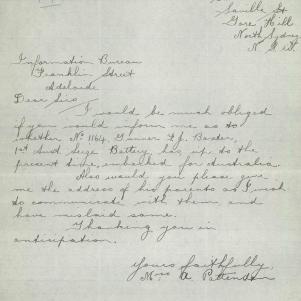 Saville St
Gore Hill
North Sydney
N.S.W.
Information Bureau
Franklin Street
Adelaide
Dear Sir
I would be much obliged
if you would inform me as to
whether No 1164, Gunner L.J. Baxter,
1st Aust Seige Battery has up to the
present time, embarked for Australia.
Also would you please give
me the address of his parents as I wish
to communicate with them, and
have mislaid same.
Thanking you in
anticipation.
Yours faithfully,
A